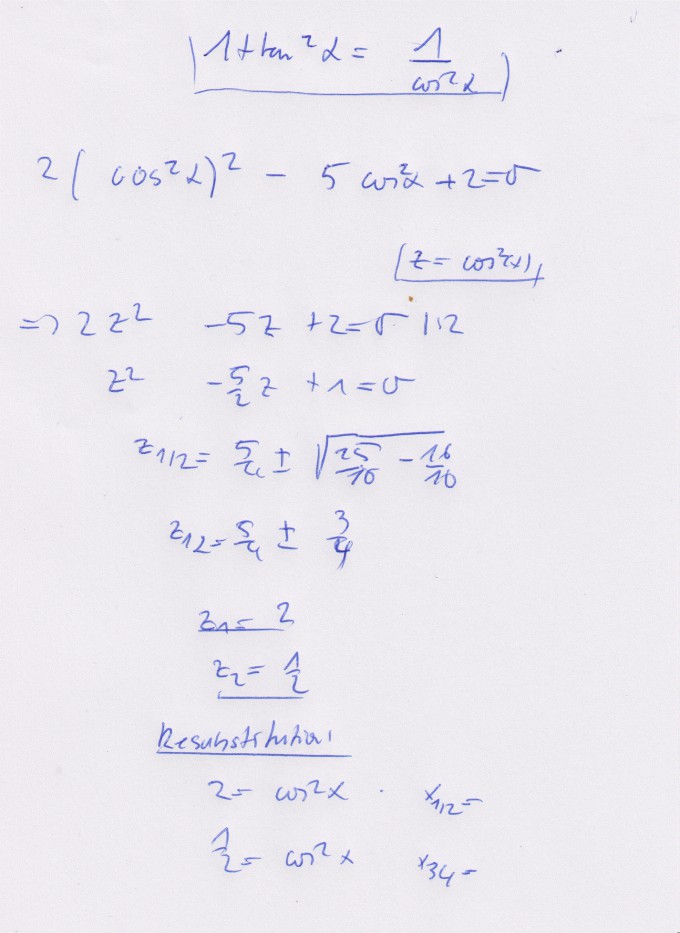 1 + tan²α = 1/cos²α
2 ( cos²α)² - 5 cos²α + 2 = 0
(z = cos²(x))
=> 2 z² - 5z + 2 = 0 |:2
z² - 5/2 z + 1 = 0
z1/2 = 5/4 ± √(25/16 - 16/16)
z12 = 5/4 ± 3/4
z1 = 2
z2 = 1/2
Resubstitution
2 = cos²x x1/2 =
1/2 = cos²x x34 =